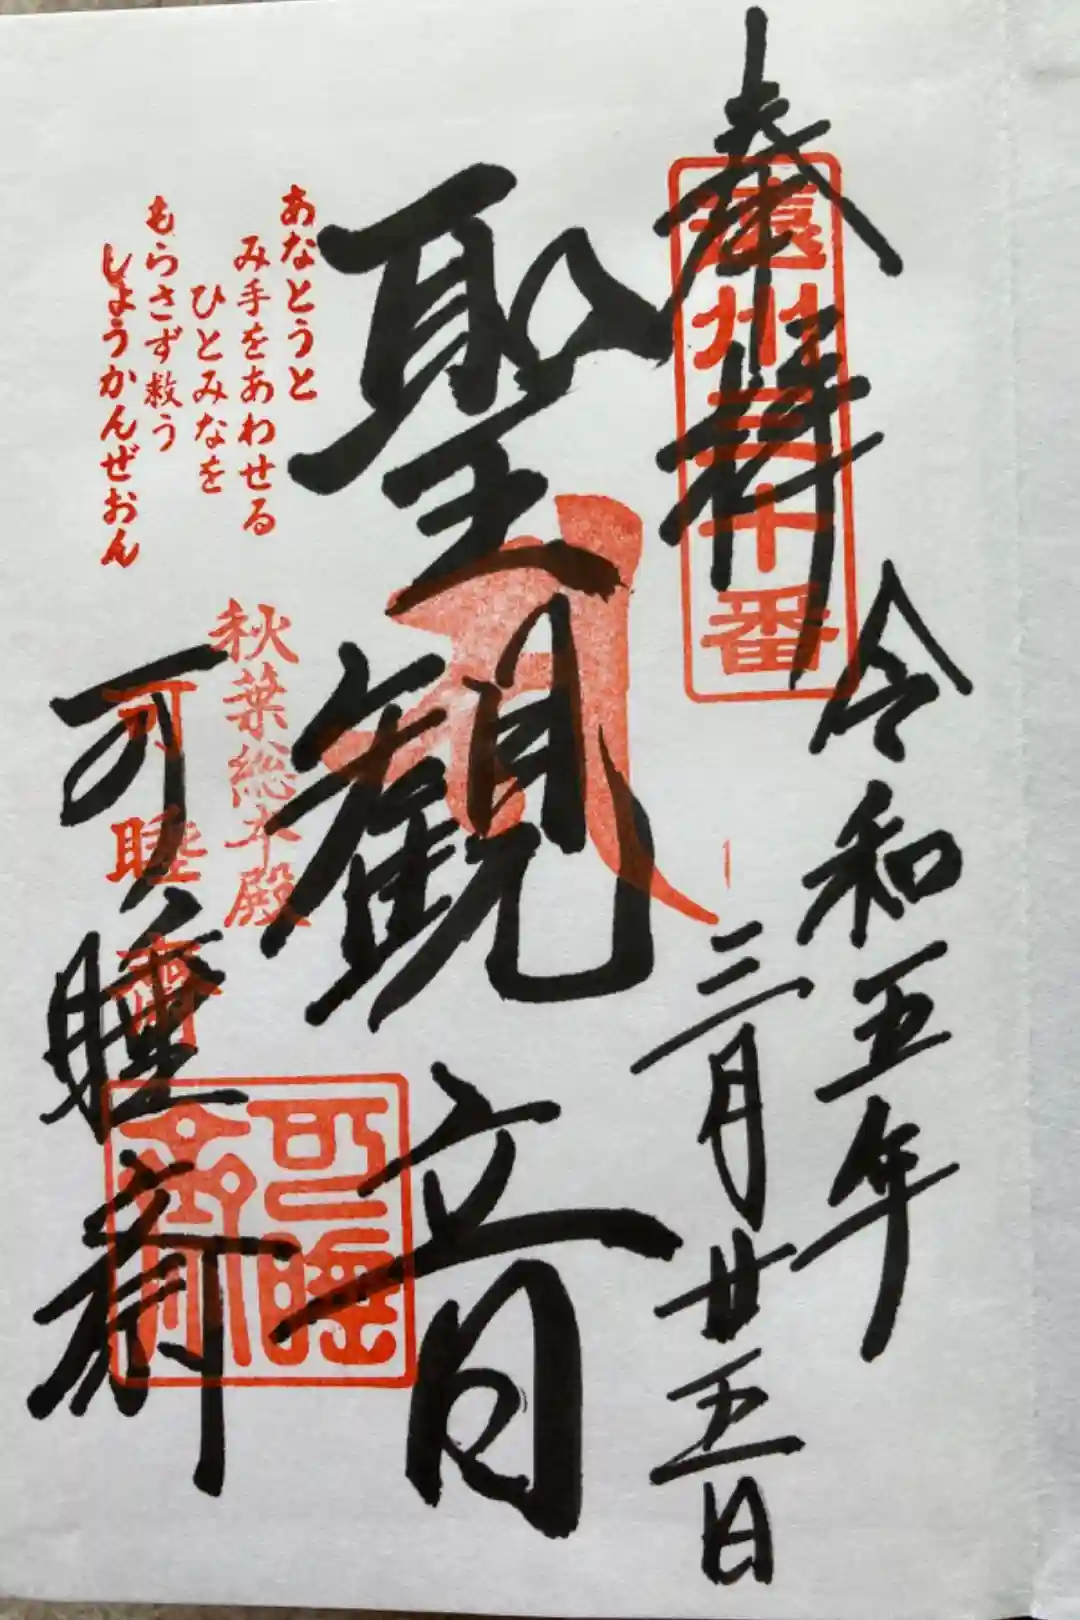 奉拝
遠州三十番
令和五年
三月廿五日
聖観音
あなとうと
み手をあわせる
ひとみなを
もらさず救う
しょうかんぜおん
秋葉総本殿
可睡斎
可睡斎
可睡斎